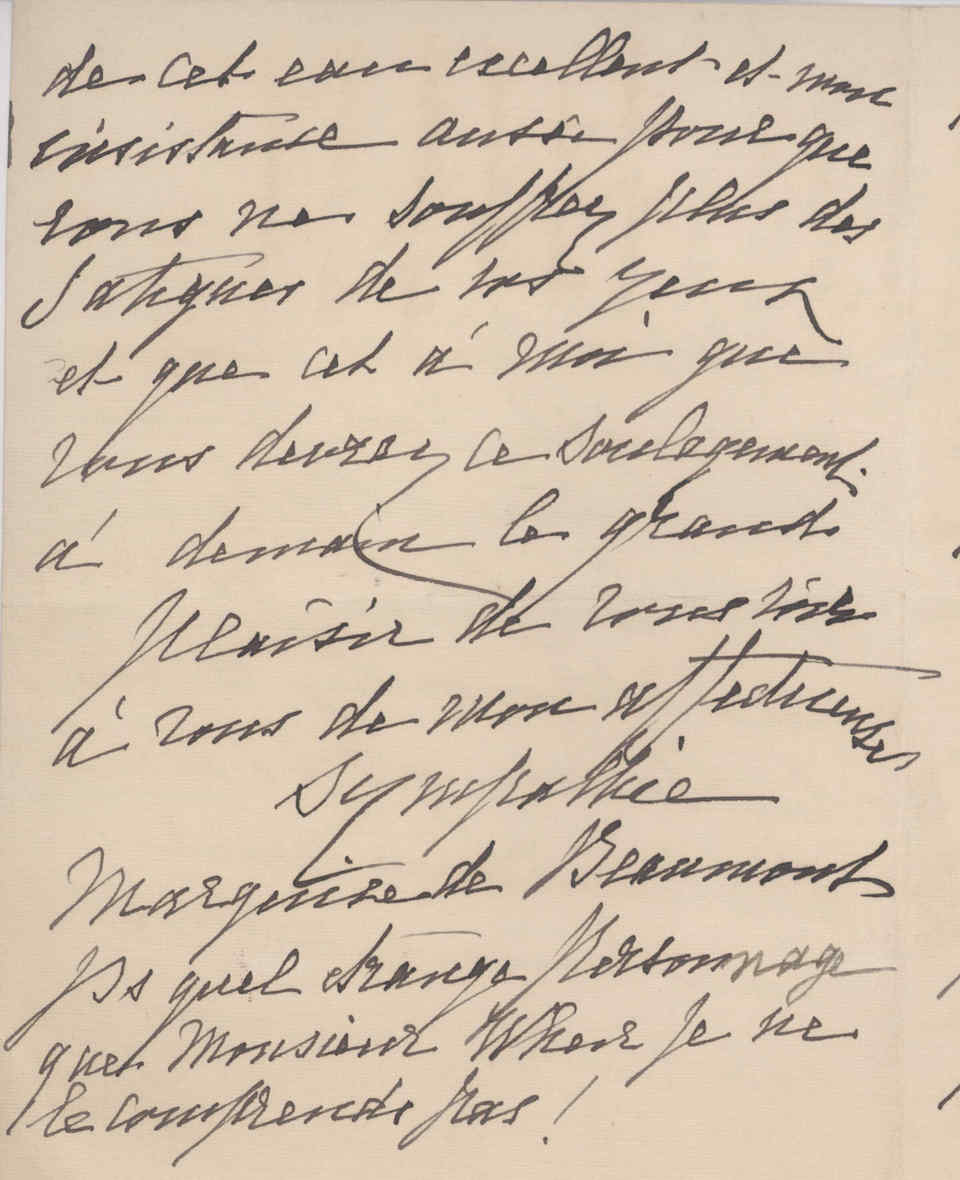 de cet eau excellent et mon
insistanse aussi pour que
vous ne souffrez plus des
fatigues de vos yeux
et que cet à moi que
vous devrez ce soulagement.
à demain le grand
plaisir de vous voir
à vous de mon affectueuse
sympathie
Marquise de Beaumont
Ps quel étrange personnage
que Monsieur je ne
le comprends pas !